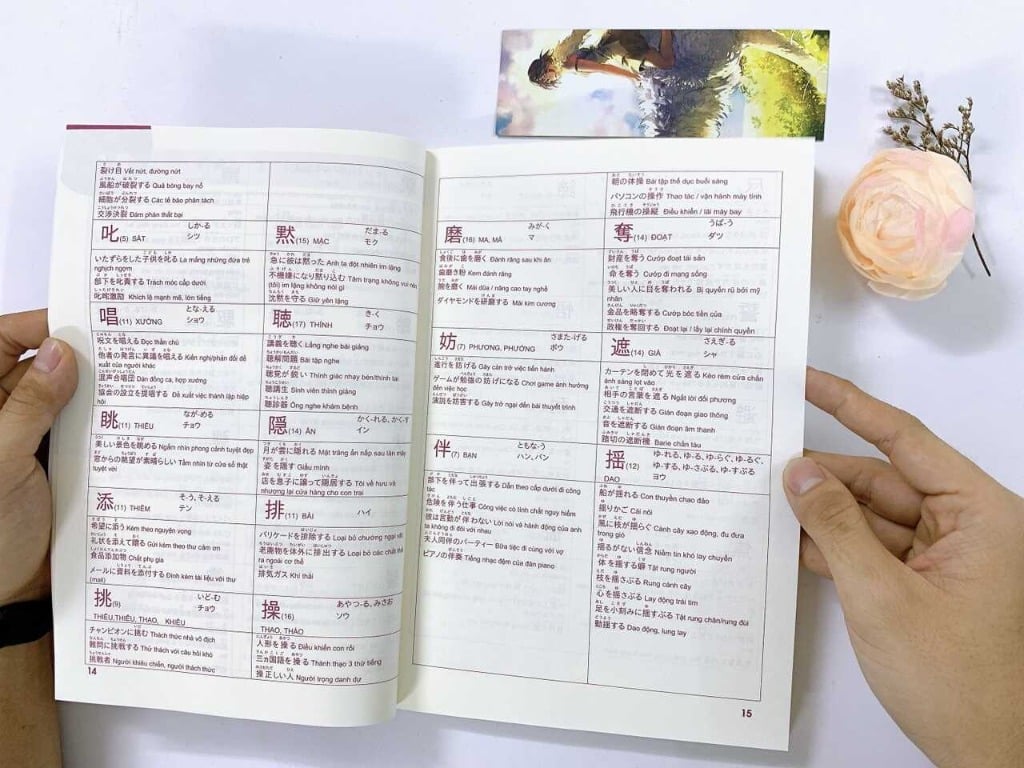 裂け目 Vết nứt, đường nứt
風船が破裂する Quả bóng bay nổ
細胞が分裂する Các tế bào phân tách
交渉決裂 Đàm phán thất bại
叱(5) SẤT しか-る
シツ
いたずらをした子供を叱る La mắng những đứa trẻ
nghịch ngợm
部下を叱責する Trách móc cấp dưới
叱咤激励 Khích lệ mạnh mẽ, lớn tiếng
唱(11) XƯỚNG とな-える
ショウ
呪文を唱える Đọc thần chú
他者の発言に異議を唱える Kiến nghị/phản đối đề
xuất của người khác
混声合唱団 Dàn đồng ca, hợp xướng
協会の設立を提唱する Đề xuất việc thành lập hiệp
hội
眺(11) THIẾU なが-める
チョウ
美しい景色を眺める Ngắm nhìn phong cảnh tuyệt đẹp
窓からの眺望が素晴らしい Tầm nhìn từ cửa sổ thật
tuyệt vời
添(11) THIÊM そ-う, そ-える
テン
希望に添う Kèm theo nguyện vọng
礼状を添えて贈る Gửi kèm theo thư cảm ơn
食品添加物 Chất phụ gia
メールに資料を添付する Đính kèm tài liệu với thư
(mail)
挑(9) いど-む
チョウ
THIÊU,THIỂU, THAO, KHIÊU
チャンピオンに挑む Thách thức nhà vô địch
難問に挑戦する Thử thách với câu hỏi khó
挑戦者 Người khiêu chiến, người thách thức
14
黙(15) MẶC だま-る
モク
急に彼は黙った Anh ta đột nhiên im lặng
不機嫌になり黙り込む Tâm trạng không vui nên
(tôi) im lặng không nói gì
沈黙を守る Giữ yên lặng
聴(17) THÍNH き-く
チョウ
講義を聴く Lắng nghe bài giảng
聴解問題 Bài tập nghe
聴覚が鋭い Thính giác nhạy bén/thính tai
聴講生 Sinh viên thính giảng
聴診器 Ống nghe khám bệnh
隠(14) ẨN かく-れる, かく-す
イン
月が雲に隠れる Mặt trăng ẩn nấp sau làn mây
姿を隠す Giấu mình
店を息子に譲って隠居する Tôi về hưu và
nhượng lại cửa hàng cho con trai
排(11) BÀI ハイ
バリケードを排除する Loại bỏ chướng ngại vật
老廃物を体外に排出する Loại bỏ các chất thải
ra ngoài cơ thể
排気ガス Khí thải
操(16) あやつ-る, みさお
ソウ
THAO, THÁO
人形を操る Điều khiển con rối
三カ国語を操る Thành thạo 3 thứ tiếng
操正しい人 Người trọng danh dự
磨(16) MA, MÁ みが-く
マ
食後に歯を磨く Đánh răng sau khi ăn
歯磨き粉 Kem đánh răng
腕を磨く Mài dũa / nâng cao tay nghề
ダイヤモンドを研磨する Mài kim cương
妨(7) PHƯƠNG, PHƯỚNG さまた-げる
ボウ
進行を妨げる Gây cản trở việc tiến hành
ゲームが勉強の妨げになる Chơi game ảnh hưởng
đến việc học
演説を妨害する Gây trở ngại đến bài thuyết trình
伴(7) BẠN ともな-う
ハン, バン
部下を伴って出張する Dẫn theo cấp dưới đi công
tác
危険を伴う仕事 Công việc có tính chất nguy hiểm
彼は言動が伴わない Lời nói và hành động của anh
ta không đi đôi với nhau
夫人同伴のパーティー Bữa tiệc đi cùng với vợ
ピアノの伴奏 Tiếng nhạc đệm của đàn piano
朝の体操 Bài tập thể dục buổi sáng
パソコンの操作 Thao tác / vận hành máy tính
飛行機の操縦 Điều khiển / lái máy bay
奪(14) ĐOẠT うば-う
ダツ
財産を奪う Cướp đoạt tài sản
命を奪う Cướp đi mạng sống
美しい人に目を奪われる Bị quyến rũ bởi mỹ
nhân
金品を略奪する Cướp bóc tiền của
政権を奪回する Đoạt lại / lấy lại chính quyền
遮(14) GIÀ さえぎ-る
シャ
カーテンを閉めて光を遮る Kéo rèm cửa chắn
ánh sáng lọt vào
相手の言葉を遮る Ngắt lời đối phương
交通を遮断する Gián đoạn giao thông
音を遮断する Gián đoạn âm thanh
踏切の遮断機 Barie chắn tàu
揺(12) ゆ-れる, ゆ-る, ゆ-らぐ, ゆ-るぐ,
ゆ-する, ゆ-さぶる, ゆ-すぶる
DAO ヨウ
船が揺れる Con thuyền chao đảo
揺りかご Cái nôi
風に枝が揺らぐ Cành cây xao động, đu đưa
trong gió
揺るがない信念 Niềm tin khó lay chuyển
体を揺する癖 Tật rung người
枝を揺さぶる Rung cành cây
心を揺さぶる Lay động trái tim
足を小刻みに揺すぶる Tật rung chân/rung đùi
動揺する Dao động, lung lay
15